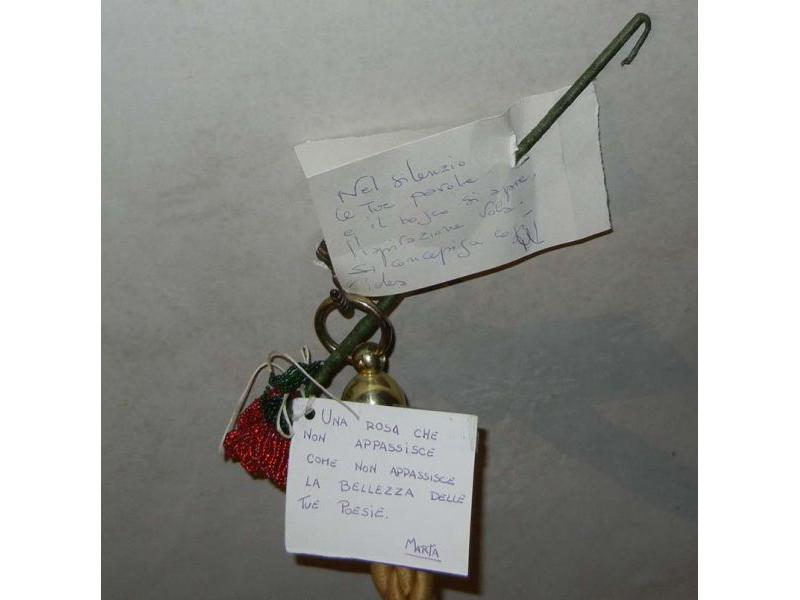 Nel silenzio
le Tue parole
e il bojco si apre,
l'ispirazione vola.
Si concepisce così
l'idea
UNA ROSA CHE
NON APPASSISCE
COME NON APPASSISCE
LA BELLEZZA DELLE
TUE POESIE.
MARTA